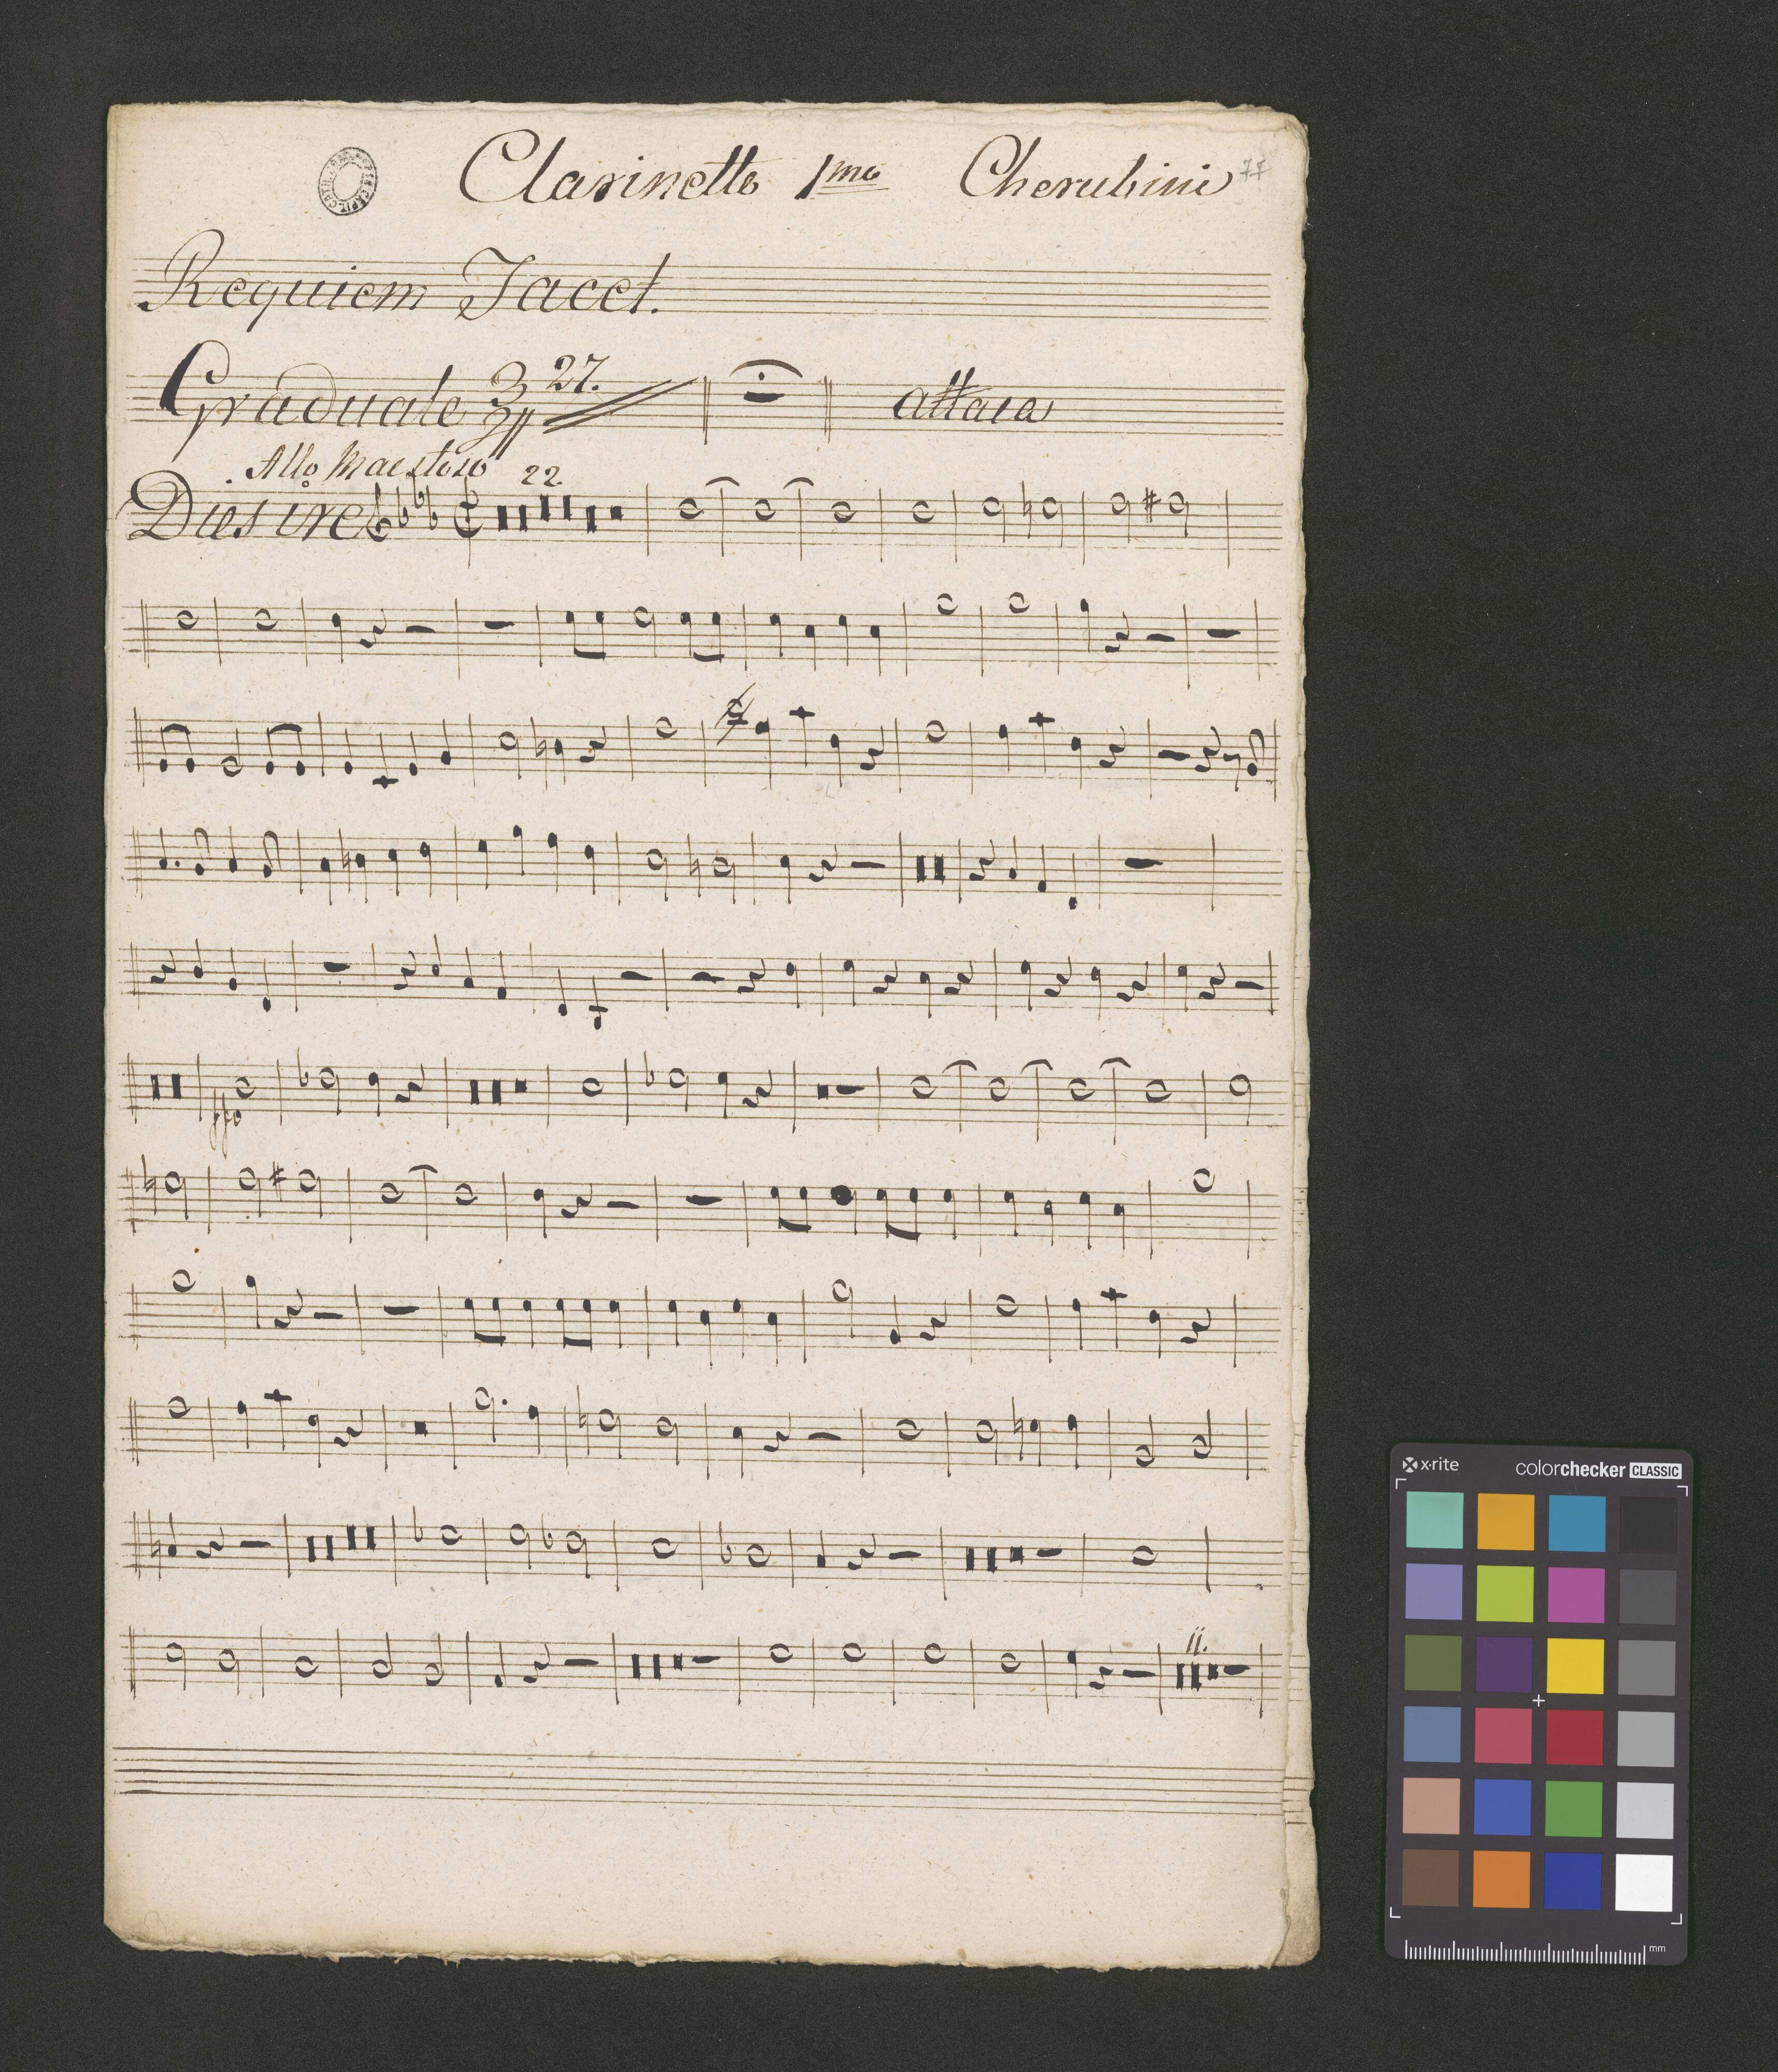 Clarinetto 1mo Cherubini 77
Requiem Tacet.
Graduale 27. attaca
Allo Maestoso 22.
Dies ire
ppo
11.
x·rite colorchecker CLASSIC
mm